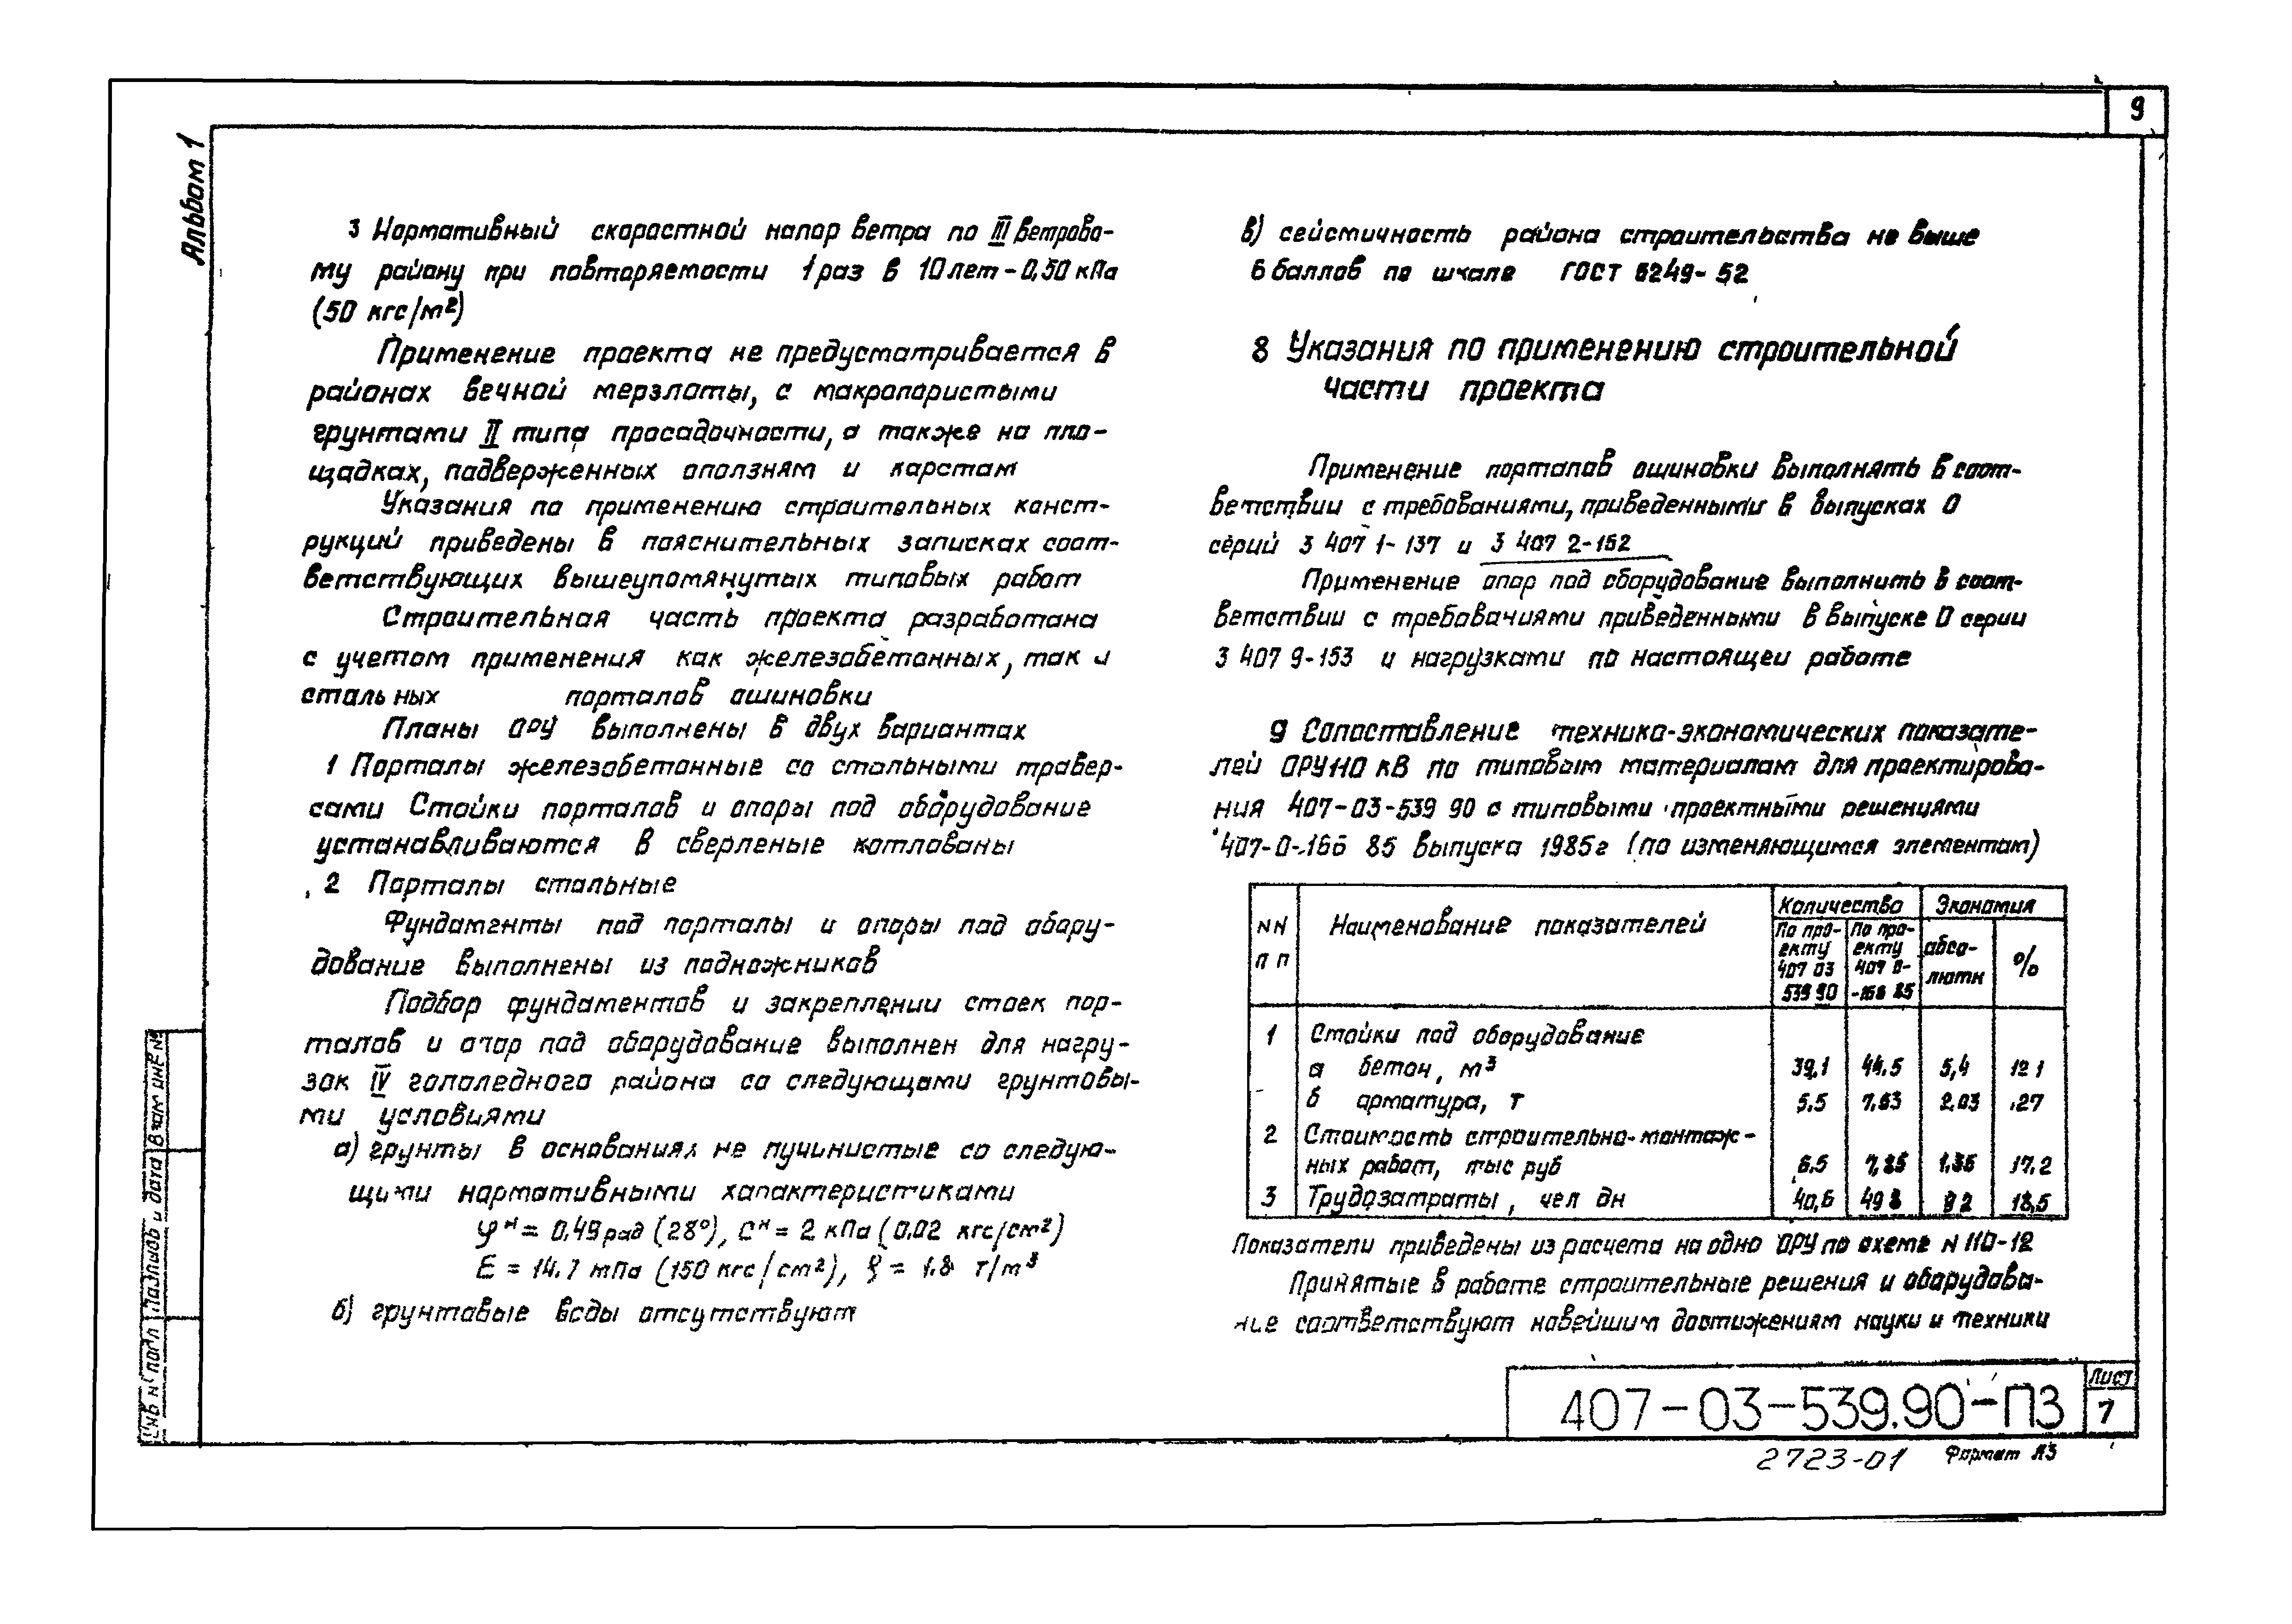 9
Альбом 1
3 Нормативный скоростной напор ветра по III ветрово-
му району при повторяемости 1 раз в 10 лет - 0,50 кПа
(50 кгс/м²)
Применение проекта не предусматривается в
районах вечной мерзлоты, с макропористыми
грунтами II типа просадочности, а также на пло-
щадках, подверженных оползням и карстам
Указания по применению строительных конст-
рукций приведены в пояснительных записках соот-
ветствующих вышеупомянутых типовых работ
Строительная часть проекта разработана
с учетом применения как железобетонных, так и
стальных порталов ошиновки
Планы ОРУ выполнены в двух вариантах
1 Порталы железобетонные со стальными травер-
сами Стойки порталов и опоры под оборудование
устанавливаются в сверленые котлованы
2 Порталы стальные
Фундаменты под порталы и опоры под обору-
дование выполнены из подножников
Подбор фундаментов и закреплении стоек пор-
талов и опор под оборудование выполнен для нагру-
зок IV гололедного района со следующами грунтовы-
ми условиями
а) грунты в основаниях не пучинистые со следую-
щими нормативными характеристиками
φᴴ = 0.49 рад (28°), Cᴴ = 2 кПа (0.02 кгс/см²)
E = 14.7 мПа (150 кгс/см²), ρ = 1.8 т/м³
б) грунтовые воды отсутствуют
в) сейсмичность района строительства не выше
6 баллов по шкале ГОСТ 6249-52
8 Указания по применению строительной
части проекта
Применение порталов ошиновки выполнять в соот-
ветствии с требованиями, приведенными в выпусках 0
серий 3 407 1-137 и 3 407 2-162
Применение опор под оборудование выполнить в соот-
ветствии с требованиями приведенными в выпуске 0 серии
3 407 9-153 и нагрузками по настоящей работе
9 Сопоставление технико-экономических показате-
лей ОРУ 110 кВ по типовым материалам для проектирова-
ния 407-03-539 90 с типовыми проектными решениями
407-0-166 85 выпуска 1985г (по изменяющимся элементам)
NN п п Наименование показателей Количество Экономия
По про-екту 407 03 539 90 По про-екту 407 0--166 85 абсо-лютн %
1 Стойки под оборудование
а бетон, м³ 39,1 44.5 5,4 12 1
б арматура, т 5.5 7.53 2.03 27
2 Стоимость строительно-монтаж-
ных работ, тыс руб 6.5 7,85 1.35 17.2
3 Трудозатраты, чел дн 40,6 49 8 9 2 18,5
Показатели приведены из расчета на одно ОРУ по схеме N 110-12
Принятые в работе строительные решения и оборудова-
ние соответствуют новейшим достижениям науки и техники
Инв N° подл Подпись и дата Взам инв №
407-03-539.90-ПЗ
Лист
7
2723-01 Формат А3